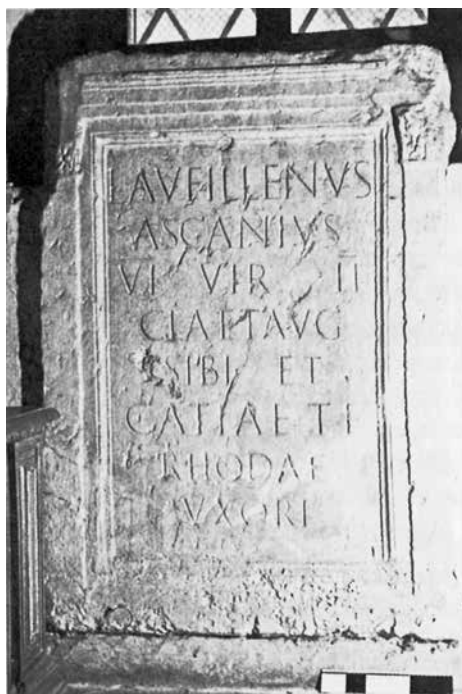 L AVFILLENVS
ASCANIVS
VI VIR II
CLA ET AVG
SIBI ET
CATIAE T L
RHODAE
VXORI